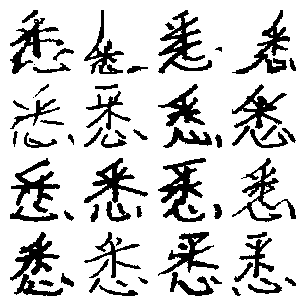 悉悉悉悉
悉悉悉悉
悉悉悉悉
悉悉悉悉